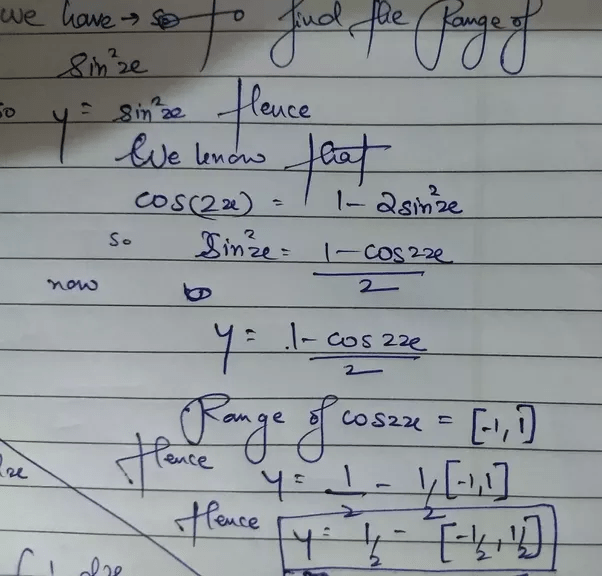 we have → so To find the Range of
sin²x
so y = sin²x Hence
We know that
cos(2x) = 1 - 2sin²x
so Sin²x = 1 - cos2x / 2
now
y = 1 - cos2x / 2
Range of cos2x = [-1, 1]
Hence y = 1/2 - 1/2 [-1, 1]
Hence y = 1/2 - [-1/2, 1/2]